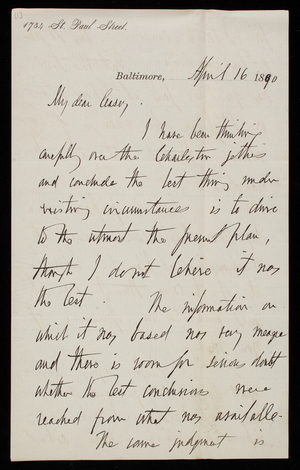 1734 St. Paul Street.
Baltimore, April 16 1890
My dear Casey,
I have been thinking
carefully over the Charleston jetties
and conclude the best thing under
existing circumstances is to drive
to the utmost the present plan,
though I do not believe it was
the best. The information on
which it was based was very meagre
and there is room for serious doubt
whether the best conclusions were
reached from what was available.
The same judgment is